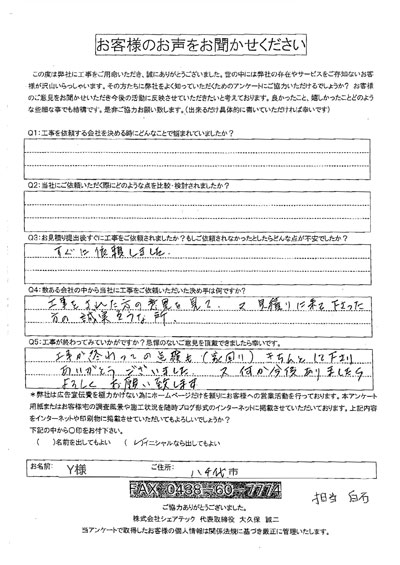 お客様のお声をお聞かせください
この度は弊社に工事をご用命いただき、誠にありがとうございました。世の中には弊社の存在やサービスをご存知ないお客
様が沢山いらっしゃいます。その方たちに弊社をよく知っていただくためのアンケートにご協力いただけるでしょうか? お客様
のご意見をお聞かせいただき今後の活動に反映させていただきたいと考えております。良かったこと、嬉しかったことどのよう
な些細な事でも結構です。是非ご協力お願い致します。(出来るだけ具体的に書いていただければ幸いです)
Q1:工事を依頼する会社を決める時にどんなことで悩まれていましたか?
Q2:当社にご依頼いただく際にどのような点を比較・検討されましたか?
Q3:お見積り提出後すぐに工事をご依頼されましたか?もしご依頼されなかったとしたらどんな点が不安でしたか?
すぐに依頼しました。
Q4:数ある会社の中から当社に工事をご依頼いただいた決め手は何ですか?
工事をされた方の意見を見て、又見積りに来て下さった
方の誠実そうな所。
Q5:工事が終わってみていかがですか?忌憚のないご意見を頂戴できましたら幸いです。
工事が終わっての点検も(家周り)きちんとして下さり
ありがとうございました。又何か今後ありましたら
よろしくお願い致します
*弊社は広告宣伝費を極力かけない為にホームページだけを頼りにお客様への営業活動を行っております。本アンケート
用紙またはお客様宅の調査風景や施工状況を随時ブログ形式のインターネットに掲載させていただいております。上記内容
をインターネットや印刷物に掲載させていただいてもよろしいでしょうか?
下記の中から〇印をお付下さい。
( )名前を出してもよい (レ)イニシャルなら出してもよい
お名前: Y様 ご住所: 八千代市
FAX 0438-60-7774
担当 白石
ご協力ありがとうございました。
株式会社シェアテック 代表取締役 大久保 誠二
当アンケートで取得したお客様の個人情報は関係法規に基づき厳正に管理いたします。